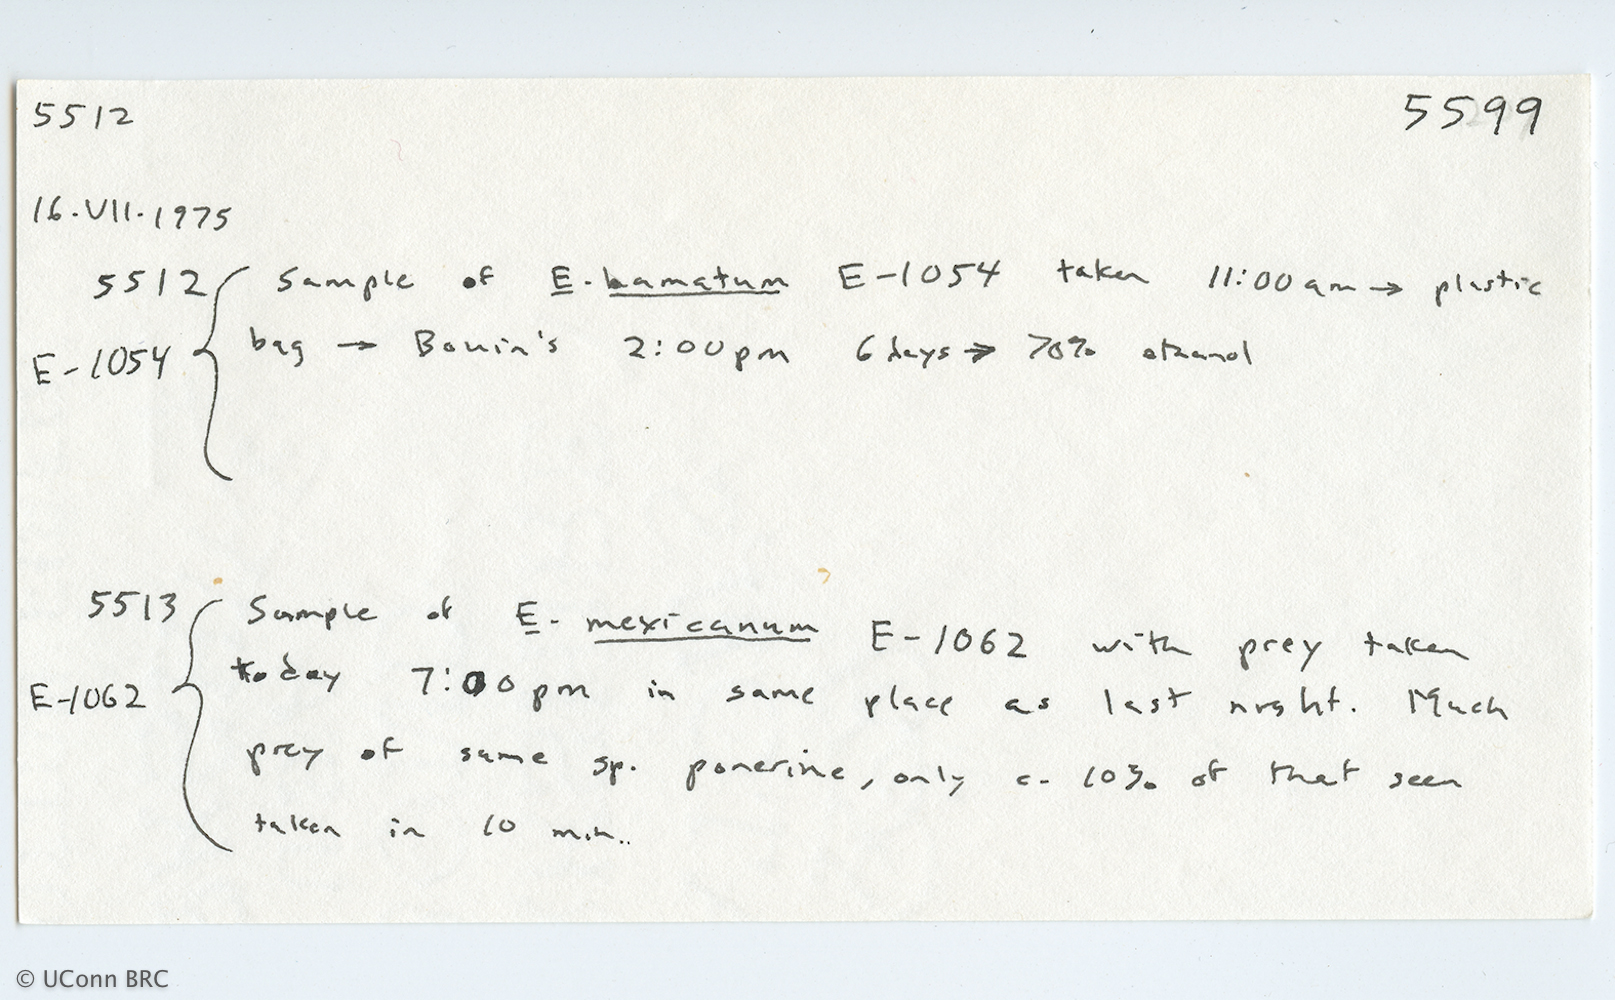 5512 5599
16.VII.1975
5512 Sample of E. hamatum E-1054 taken 11:00 am → plastic
E-1054 bag → Bouin's 2:00 pm 6 days → 70% ethanol
5513 Sample of E. mexicanum E-1062 with prey taken
E-1062 today 7:00 pm in same place as last night. Much
prey of same sp. ponerine, only c. 10% of that seen
taken in 10 min..
© UConn BRC